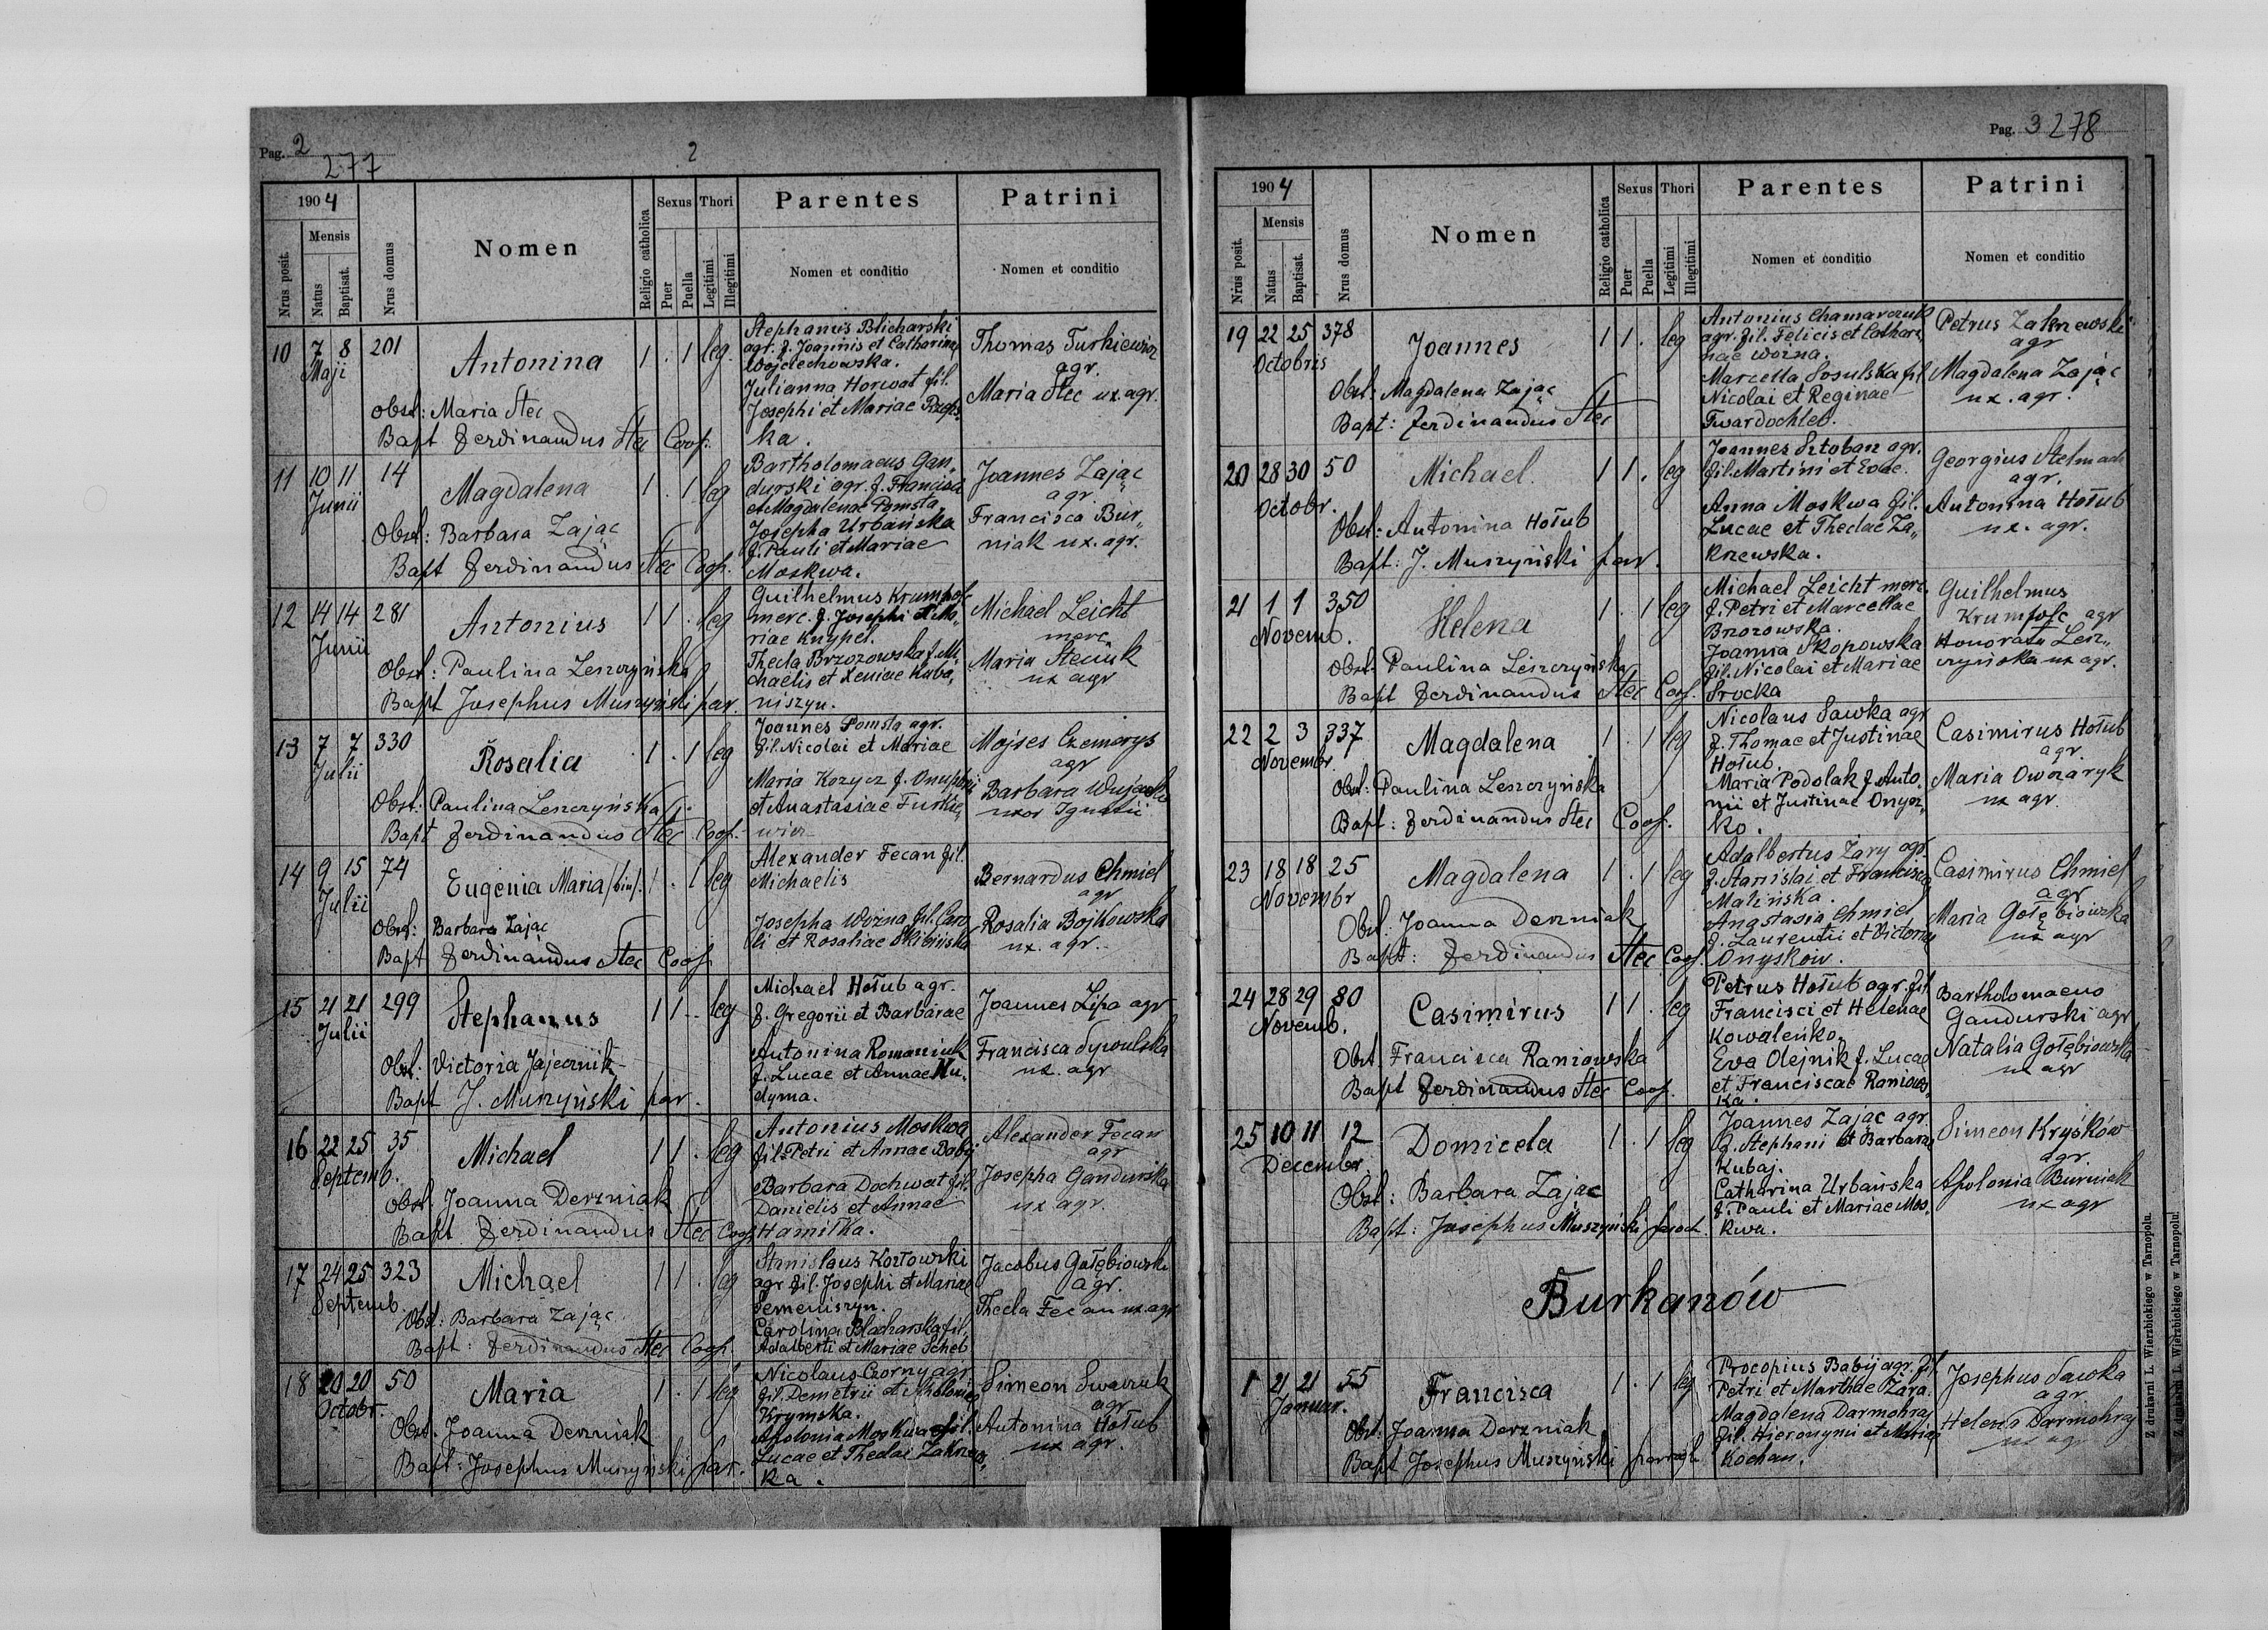 Pag. 2
277
2
1904
Nrus posit.
Mensis
Natus
Baptisat.
Nrus domus
Nomen
Religio catholica
Sexus
Puer
Puella
Thori
Legitimi
Illegitimi
Parentes
Nomen et conditio
Patrini
Nomen et conditio
10 7 8 201 Antonina 1 . 1 leg.
Maji
Obst: Maria Stec
Bapt Ferdinandus Stec Coop.
Stephanus Blicharski
agr. f. Joannis et Catharinae
Wojciechowska.
Julianna Horwat fil.
Josephi et Mariae
ka.
Thomas Turkiewicz
agr.
Maria Stec ux. agr.
11 10 11 14 Magdalena 1 . 1 leg
Junii
Obst: Barbara Zając
Bapt Ferdinandus Stec Coop.
Bartholomaeus Gan„
durski agr. f. Francisci
et Magdalenae Pomsta
Josepha Urbańska
f. Pauli et Mariae
Moskwa.
Joannes Zając
agr.
Francisca Bur„
niak ux. agr.
12 14 14 281 Antonius 1 1 . leg
Junii
Obst: Paulina Leszczyńska
Bapt Josephus Muszyński par.
Guilhelmus Krumpolc
merc. f. Josephi et Ma„
riae Knypel.
Thecla Brzozowska f. Mi„
chaelis et Xeniae Kuba„
niszyn.
Michael Leicht
merc
Maria Steciuk
ux agr
13 7 7 330 Rosalia 1 . 1 leg
Julii
Obst: Paulina Leszczyńska
Bapt Ferdinandus Stec Coop.
Joannes Pomsta agr.
fil. Nicolai et Mariae
Maria Kozycz f. Onuphrii
et Anastasiae Turkie„
wicz
Mojses Czemerys
agr
Barbara
uxor Ignatii
14 9 15 74 Eugenia Maria /bin/. 1 . 1 leg
Julii
Obst: Barbara Zając
Bapt Ferdinandus Stec Coop
Alexander Fecan fil.
Michaelis
Josepha Woźna fil. Caro
li et Rosaliae Skibińska
Bernardus Chmiel
agr
Rosalia Bojkowska
ux. agr.
15 21 21 299 Stephanus 1 1 . leg
Julii
Obst: Victoria Jajecznik
Bapt J. Muszyński par.
Michael Hołub agr.
f. Gregorii et Barbarae
Antonina Romaniuk
f. Lucae et Annae Hu„
dyma.
Joannes Lipa agr
Francisca Sywulska
ux. agr
16 22 25 35 Michael 1 1 . leg
Septemb.
Obst. Joanna Derzniak
Bapt Ferdinandus Stec Coop.
Antonius Moskwa
fil. Petri et Annae Babij
Barbara Dochwat fil
Danielis et Annae
Hamilka.
Alexander Fecan
agr
Josepha Gandurska
ux agr.
17 24 25 323 Michael 1 1 . leg
Septemb.
Obst: Barbara Zając
Bapt: Ferdinandus Stec Coop.
Stanislaus Kozłowski
agr fil. Josephi et Mariae
Semeniszyn.
Carolina Blacharska fil.
Adalberti et Mariae Scheb
Jacobus Gołębiowski
agr.
Thecla Fecan ux. agr
18 20 20 50 Maria 1 . 1 leg
Octobr.
Obst. Joanna Derzniak
Bapt: Josephus Muszyński par.
Nicolaus Czorny agr
fil. Demetrii et Apoloniae
Krymska.
Apolonia Moskwa fil.
Lucae et Theclae Zakrzews„
ka.
Simeon Swaczuk
agr
Antonina Hołub
ux agr.
Pag. 3 278
1904
Nrus posit.
Mensis
Natus
Baptisat.
Nrus domus
Nomen
Religio catholica
Sexus
Puer
Puella
Thori
Legitimi
Illegitimi
Parentes
Nomen et conditio
Patrini
Nomen et conditio
19 22 25 378 Joannes 1 1 . leg
Octobris
Obst: Magdalena Zając
Bapt: Ferdinandus Stec
Antonius Chamarczuk
agr. fil. Felicis et Cathari„
nae Woźna.
Marcella Sosulska fil
Nicolai et Reginae
Twardochleb.
Petrus Zakrzewski
agr
Magdalena Zając
ux. agr.
20 28 30 50 Michael. 1 1 . leg
Octobr.
Obst: Antonina Hołub
Bapt: J. Muszyński par.
Joannes Sztoban agr.
fil. Martini et Evae.
Anna Moskwa fil.
Lucae et Theclae Za„
krzewska.
Georgius Stelmach
agr.
Antonina Hołub
ux. agr.
21 1 1 350 Helena 1 . 1 leg
Novemb.
Obst: Paulina Leszczyńska
Bapt Ferdinandus Stec Coop.
Michael Leicht merc.
f. Petri et Marcellae
Brzozowska.
Joanna Skopowska
fil. Nicolai et Mariae
Srocka
Guilhelmus
Krumpolc agr
Honorata Lesz„
czyńska ux agr.
22 2 3 337 Magdalena 1 . 1 leg
Novembr.
Obst: Paulina Leszczyńska
Bapt: Ferdinandus Stec Coop.
Nicolaus Sawka agr
f. Thomae et Justinae
Hołub.
Maria Podolak f. Anto„
nii et Justinae Onysz„
ko.
Casimirus Hołub
agr.
Maria Owczaryk
ux agr.
23 18 18 25 Magdalena 1 . 1 leg
Novembr
Obst: Joanna Derzniak
Bapt: Ferdinandus Stec Coop.
Adalbertus Zary agr.
f. Stanislai et Francisca
Malińska.
Anastasia Chmiel
f. Laurentii et Victoriae
Onyskow.
Casimirus Chmiel
agr
Maria Gołębiowska
ux agr
24 28 29 80 Casimirus 1 1 . leg
Novemb.
Obst Francisca Raniowska
Bapt Ferdinandus Stec Coop.
Petrus Hołub agr. fil
Francisci et Helenae
Kowaleńko.
Eva Olejnik f. Lucae
et Franciscae Raniows„
ka.
Bartholomaeus
Gandurski agr
Natalia Gołębiowska
ux agr
25 10 11 12 Domicela 1 . 1 leg
Decembr
Obst: Barbara Zając
Bapt: Josephus Muszyński paroch.
Joannes Zając agr
f. Stephani et Barbarae
Kubaj.
Catharina Urbańska
f. Pauli et Mariae Mos„
kwa.
Simeon Kryśków
agr.
Apolonia Burniak
ux agr
Burkanów
1 21 21 55 Francisca 1 . 1 leg
Januar.
Obst: Joanna Derzniak
Bapt Josephus Muszyński paroch
Procopius Babij agr. fil
Petri et Marthae Żara.
Magdalena Darmohraj
fil. Hieronymi et Mariae
Kochan.
Josephus Sawka
agr
Helena Darmohraj
ux agr
Z drukarni L. Wierzbickiego w Tarnopolu.
Z drukarni L. Wierzbickiego w Tarnopolu.